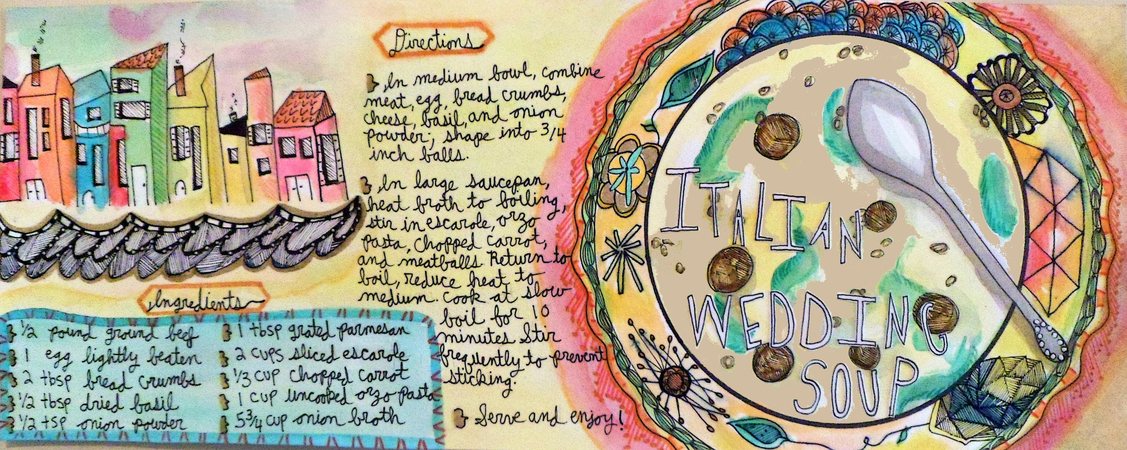 Directions
In medium bowl, combine
meat, egg, bread crumbs,
cheese, basil, and onion
powder; shape into 3/4
inch balls.
In large saucepan,
heat broth to boiling,
stir in escarole, orzo
pasta, chopped carrot,
and meatballs. Return to
boil, reduce heat to
medium. Cook at slow
boil for 10
minutes Stir
frequently to prevent
sticking.
Serve and enjoy!
Ingredients
1/2 pound ground beef
1 egg lightly beaten
2 tbsp bread crumbs
1/2 tbsp dried basil
1/2 tsp onion powder
1 tbsp grated parmesan
2 cups sliced escarole
1/3 cup chopped carrot
1 cup uncooked orzo pasta
5 3/4 cup onion broth
ITALIAN
WEDDING
SOUP